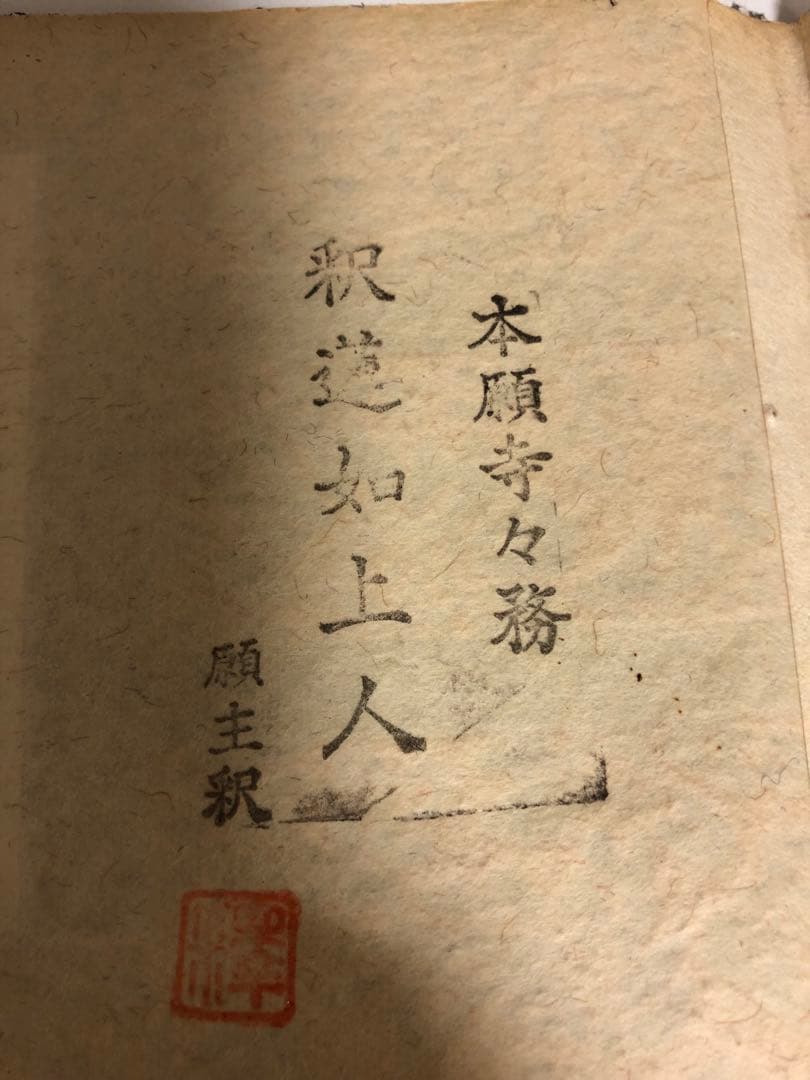 本願寺々務
釈蓮如上人
願主釈